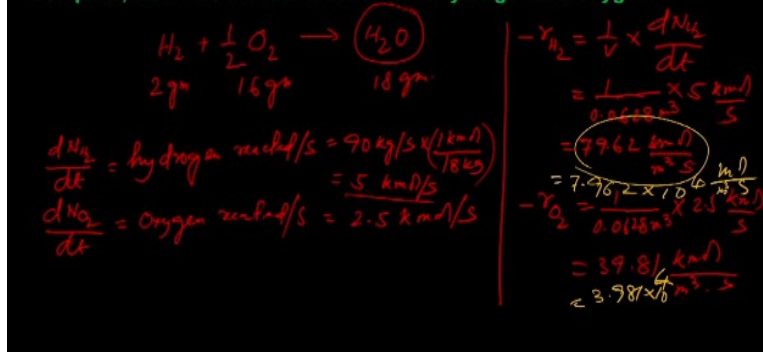 H₂ + 1/2 O₂ → H₂O
2 gm 16 gm 18 gm.
dN_H₂/dt = hydrogen reacted/s = 90 kg/s × (1 kmol/18 kg)
= 5 kmol/s
dN_O₂/dt = Oxygen reacted/s = 2.5 kmol/s
-r_H₂ = 1/V × dN_H₂/dt
= 1/0.0628 m³ × 5 kmol/s
= 79.62 kmol/m³ s
= 7.962 × 10⁴ mol/m³ s
-r_O₂ = 1/0.0628 m³ × 2.5 kmol/s
= 39.81 kmol/m³. s
= 3.981 × 10⁴